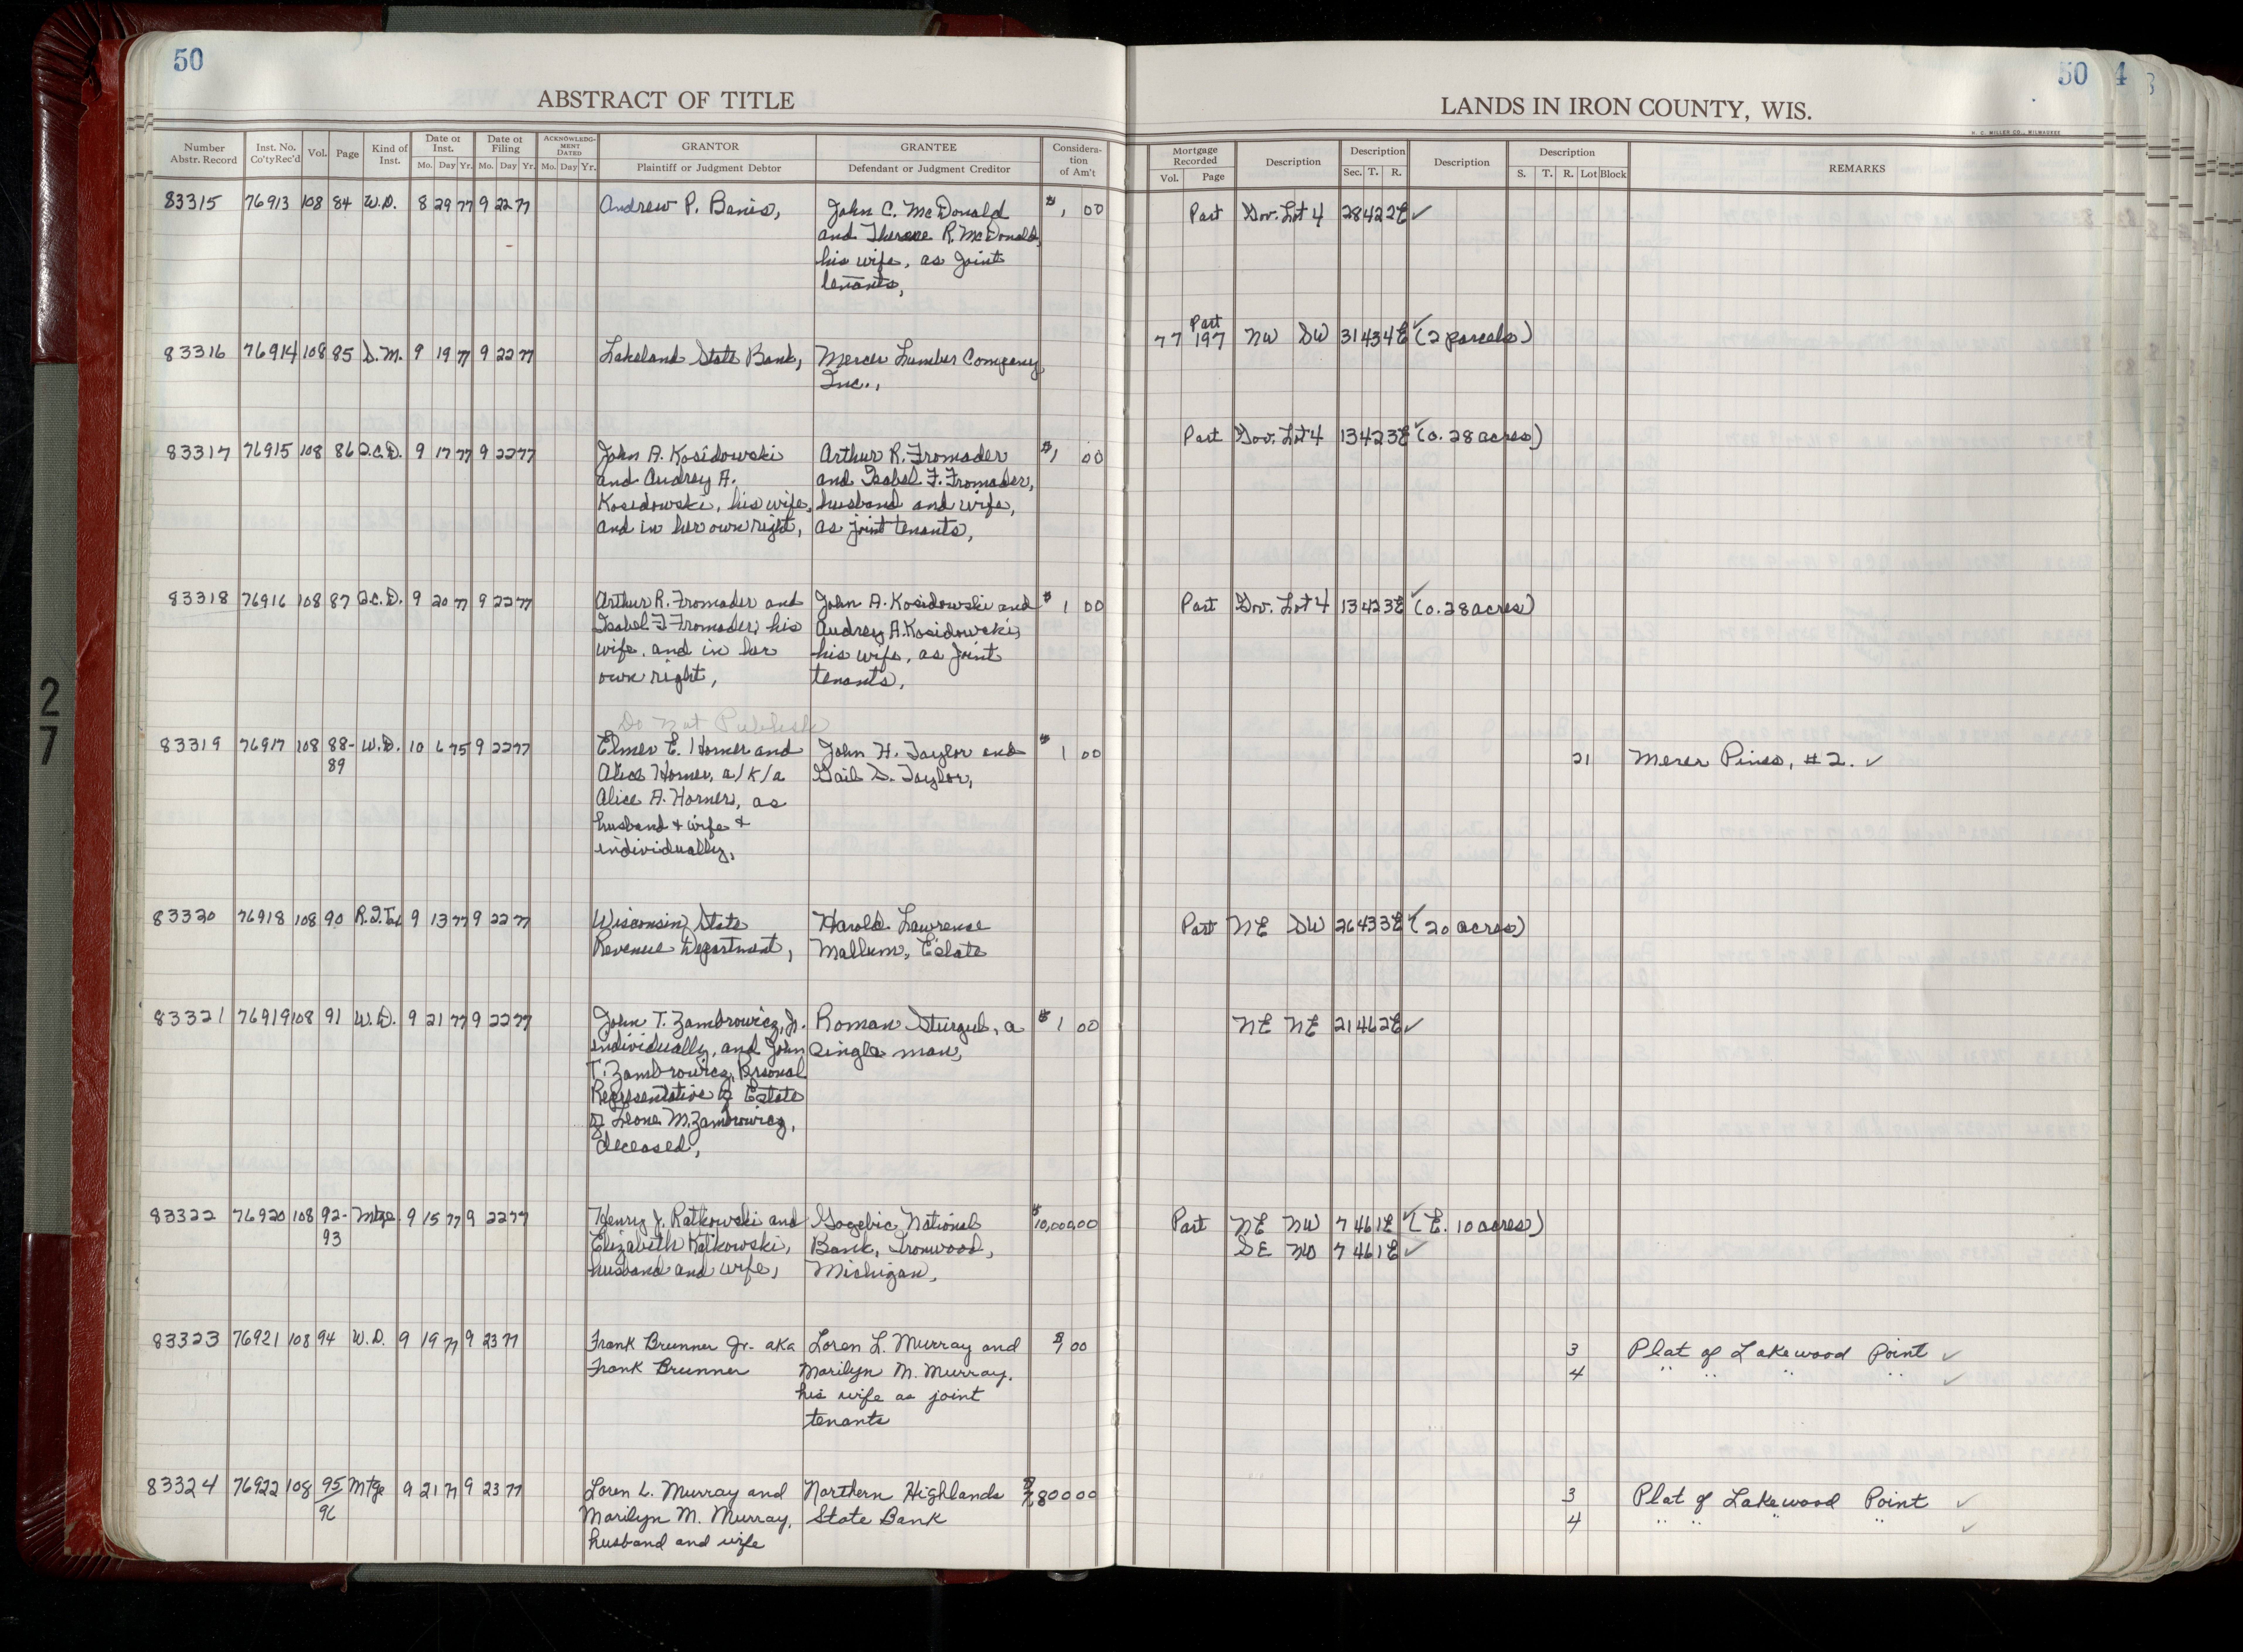 50
ABSTRACT OF TITLE
Number Abstr. Record Inst. No. Co'tyRec'd Vol. Page Kind of Inst. Date of Inst. Mo. Day Yr. Date of Filing Mo. Day Yr. ACKNOWLEDGMENT DATED Mo. Day Yr. GRANTOR Plaintiff or Judgment Debtor GRANTEE Defendant or Judgment Creditor Consideration of Am't
83315 76913 108 84 W.D. 8 29 77 9 22 77 Andrew P. Benis, John C. McDonald $1,00
and Therese R. McDonald,
his wife, as joint
tenants,
83316 76914 108 85 S.M. 9 19 77 9 22 77 Lakeland State Bank, Mercer Lumber Company,
Inc.,
83317 76915 108 86 Q.C.D. 9 17 77 9 22 77 John A. Kosidowski Arthur R. Fromader $1 00
and Audrey A. and Isabel F. Fromader,
Kosidowski, his wife, husband and wife,
and in her own right, as joint tenants,
83318 76916 108 87 Q.C.D. 9 20 77 9 22 77 Arthur R. Fromader and John A. Kosidowski and $1 00
Isabel F. Fromader, his Audrey A. Kosidowski,
wife, and in her his wife, as joint
own right, tenants,
Do Not Publish
83319 76917 108 88- W.D. 10 6 75 9 22 77 Elmer E. Horner and John H. Taylor and $1 00
89 Alice Horner, a/k/a Gail S. Taylor,
Alice A. Horner, as
husband & wife &
individually,
83320 76918 108 90 R.I.Tax 9 13 77 9 22 77 Wisconsin State Harold Lawrence
Revenue Department, Mallum, Estate
83321 76919 108 91 W.D. 9 21 77 9 22 77 John T. Zambrowicz, Jr. Roman Sturgul, a $1 00
individually, and John single man,
T. Zambrowicz, Personal
Representative of Estate
of Leone M. Zambrowicz,
deceased,
83322 76920 108 92- Mtge 9 15 77 9 22 77 Henry J. Ratkowski and Gogebic National $10,000.00
93 Elizabeth Ratkowski, Bank, Ironwood,
husband and wife, Michigan,
83323 76921 108 94 W.D. 9 19 77 9 23 77 Frank Brunner Jr. aka Loren L. Murray and $1 00
Frank Brunner Marilyn M. Murray.
his wife as joint
tenants
83324 76922 108 95/96 Mtge 9 21 77 9 23 77 Loren L. Murray and Northern Highlands $7,800 00
Marilyn M. Murray, State Bank
husband and wife
50
4
LANDS IN IRON COUNTY, WIS.
H. C. MILLER CO., MILWAUKEE
Mortgage Recorded Vol. Page Description Description Sec. T. R. Description Description S. T. R. Lot Block REMARKS
Part Gov. Lot 4 28 42 2E ✓
Part
77 197 NW SW 31 43 4E ✓ (2 parcels)
Part Gov. Lot 4 13 42 3E ✓ (0.28 acres)
Part Gov. Lot 4 13 42 3E ✓ (0.28 acres)
21 Mercer Pines, #2. ✓
Part NE SW 26 43 3E ✓ (20 acres)
NE NE 21 46 2E ✓
Part NE NW 7 46 1E ✓ (E. 10 acres)
SE NW 7 46 1E ✓
3 Plat of Lakewood Point ✓
4 " " " " ✓
3 Plat of Lakewood Point ✓
4 " " " " ✓
27